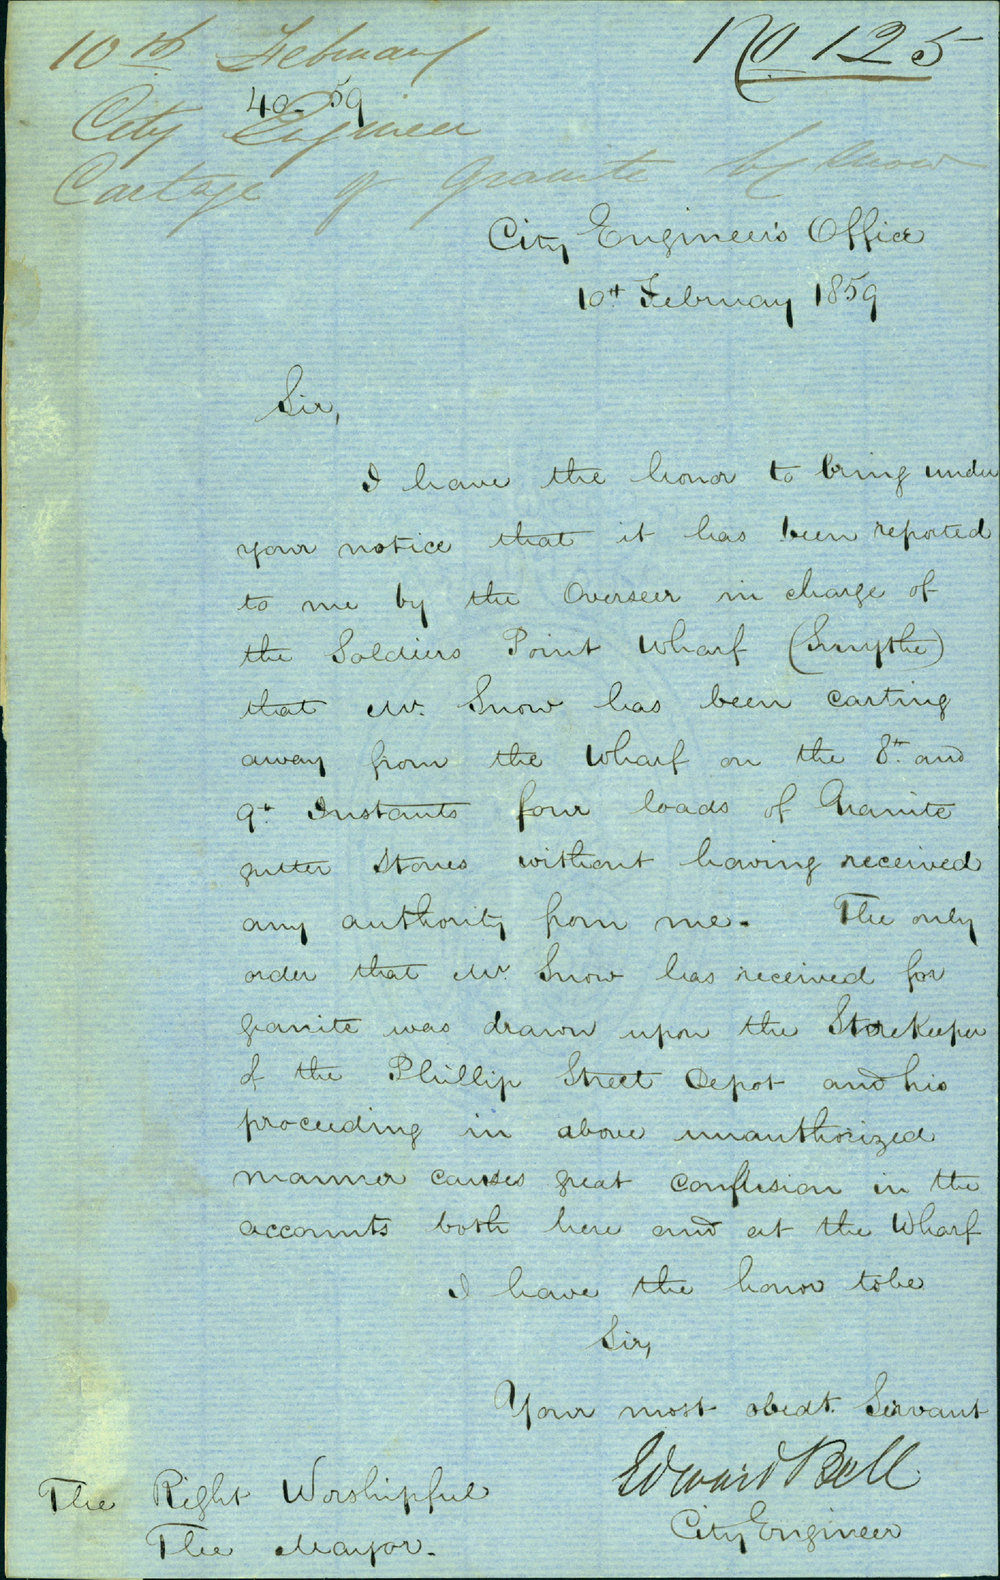 10th February
No 125
40-59
City Engineer
Cartage of Granite by Snow
City Engineer's Office
10th February 1859
Sir,
I have the honor to bring under
your notice that it has been reported
to me by the Overseer in charge of
the Soldiers Point Wharf (Smythe)
that Mr. Snow has been carting
away from the Wharf on the 8th. and
9th Instants four loads of Granite
gutter stones without having received
any authority from me. The only
order that Mr Snow has received for
granite was drawn upon the StoreKeeper
of the Phillip Street Depot and his
proceeding in above unauthorized
manner causes great confusion in the
accounts both here and at the Wharf
I have the honor to be
Sir,
Your most obedt. Servant
Edward Bell
City Engineer
The Right Worshipful
The Mayor.